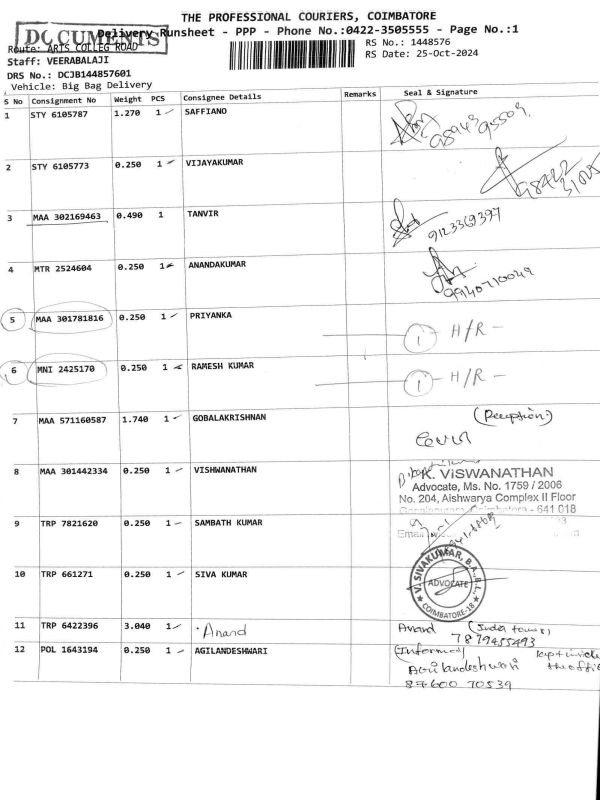 THE PROFESSIONAL COURIERS, COIMBATORE
DOCUMENTS
Delivery Runsheet - PPP - Phone No.:0422-3505555 - Page No.:1
Route: ARTS COLLEG ROAD
RS No.: 1448576
Staff: VEERABALAJI
RS Date: 25-Oct-2024
DRS No.: DCJB144857601
Vehicle: Big Bag Delivery
S No Consignment No Weight PCS Consignee Details Remarks Seal & Signature
1 STY 6105787 1.270 1 SAFFIANO
2 STY 6105773 0.250 1 VIJAYAKUMAR
3 MAA 302169463 0.490 1 TANVIR 9123369397
4 MTR 2524604 0.250 1 ANANDAKUMAR 9940710049
5 MAA 301781816 0.250 1 PRIYANKA 1 H/R -
6 MNI 2425170 0.250 1 RAMESH KUMAR 1 H/R -
7 MAA 571160587 1.740 1 GOBALAKRISHNAN (Reception)
8 MAA 301442334 0.250 1 VISHWANATHAN K. VISWANATHAN
Advocate, Ms. No. 1759 / 2006
No. 204, Aishwarya Complex II Floor
Coimbatore - 641 018
9 TRP 7821620 0.250 1 SAMBATH KUMAR
Email
10 TRP 661271 0.250 1 SIVA KUMAR V. SIVAKUMAR, B.A., B.L., ADVOCATE COIMBATORE-18
11 TRP 6422396 3.040 1 Anand Anand (India towers)
7879455493
12 POL 1643194 0.250 1 AGILANDESHWARI (Informed kept inside
Agilandeshwari the office
87600 70539